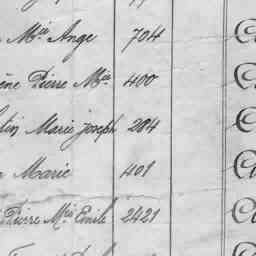 Mie Ange 704
Pierre Mie 400
Marie joseph 204
Marie 401
Pierre Mie Emile 2421